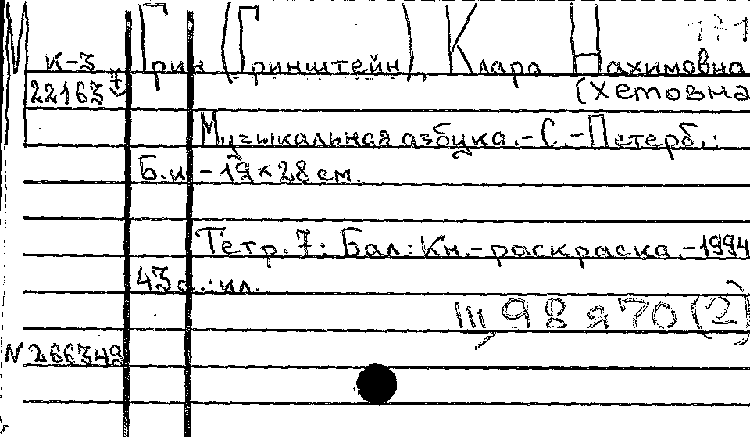 М К-3 Грин (Гринштейн), Клара Нахимовна 171
22163 7 (Хемовна
Музыкальная азбука.-С.-Петерб.:
Б.и - 19×28 см.
Тетр. 7: Бал: Кн.-раскраска.-1994
43 с.: ил.
Щ98я70(2)
N 266349